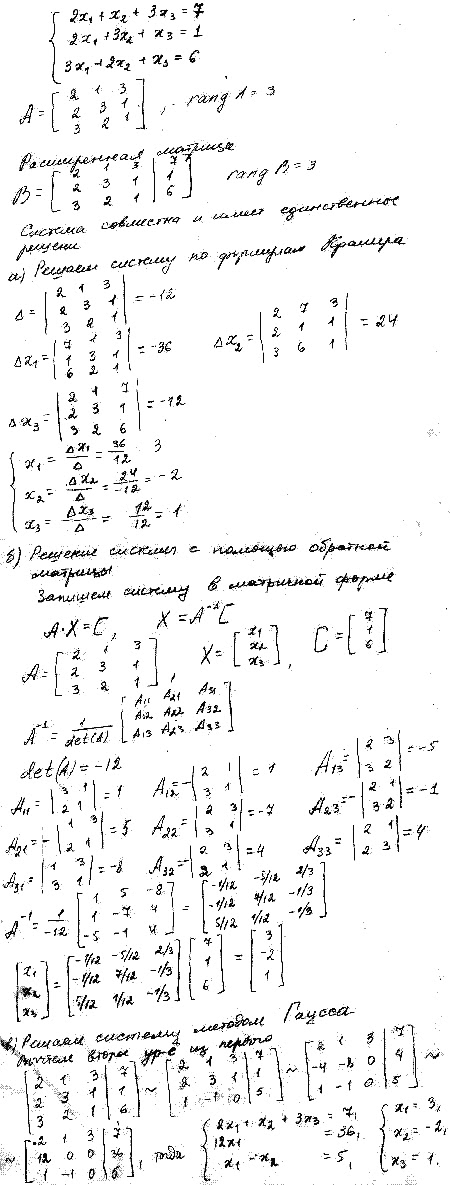 2x₁ + x₂ + 3x₃ = 7
2x₁ + 3x₂ + x₃ = 1
3x₁ + 2x₂ + x₃ = 6
A = [2 1 3; 2 3 1; 3 2 1], rang A = 3
Расширенная матрица
B = [2 1 3 | 7; 2 3 1 | 1; 3 2 1 | 6] rang B = 3
Система совместна и имеет единственное
решени
а) Решаем систему по формулам Крамера
Δ = |2 1 3; 2 3 1; 3 2 1| = -12
Δx₁ = |7 1 3; 1 3 1; 6 2 1| = -36 Δx₂ = |2 7 3; 2 1 1; 3 6 1| = 24
Δx₃ = |2 1 7; 2 3 1; 3 2 6| = -12
x₁ = Δx₁/Δ = 36/12 3
x₂ = Δx₂/Δ = 24/-12 = -2
x₃ = Δx₃/Δ = 12/12 = 1
б) Решение системы с помощью обратной
матрицы
Запишем систему в матричной форме
A·X = C, X = A⁻¹C
A = [2 1 3; 2 3 1; 3 2 1], X = [x₁; x₂; x₃], C = [7; 1; 6]
A⁻¹ = 1/det(A) [A₁₁ A₂₁ A₃₁; A₁₂ A₂₂ A₃₂; A₁₃ A₂₃ A₃₃]
det(A) = -12
A₁₁ = |3 1; 2 1| = 1 A₁₂ = -|2 1; 3 1| = 1 A₁₃ = |2 3; 3 2| = -5
A₂₁ = -|1 3; 2 1| = 5 A₂₂ = |2 3; 3 1| = -7 A₂₃ = -|2 1; 3 2| = -1
A₃₁ = |1 3; 3 1| = -8 A₃₂ = -|2 3; 2 1| = 4 A₃₃ = |2 1; 2 3| = 4
A⁻¹ = 1/-12 [1 5 -8; 1 -7 4; -5 -1 4] = [-1/12 -5/12 2/3; -1/12 7/12 -1/3; 5/12 1/12 -1/3]
[x₁; x₂; x₃] = [-1/12 -5/12 2/3; -1/12 7/12 -1/3; 5/12 1/12 -1/3] [7; 1; 6] = [3; -2; 1]
в) Решаем систему методом Гаусса
второе ур-е из первого
[2 1 3 | 7; 2 3 1 | 1; 3 2 1 | 6] ~ [2 1 3 | 7; 2 3 1 | 1; 1 -1 0 | 5] ~ [2 1 3 | 7; -4 -8 0 | 4; 1 -1 0 | 5] ~
~ [2 1 3 | 7; 12 0 0 | 36; 1 -1 0 | 5], тогда {2x₁ + x₂ + 3x₃ = 7, 12x₁ = 36, x₁ - x₂ = 5, {x₁ = 3, x₂ = -2, x₃ = 1.